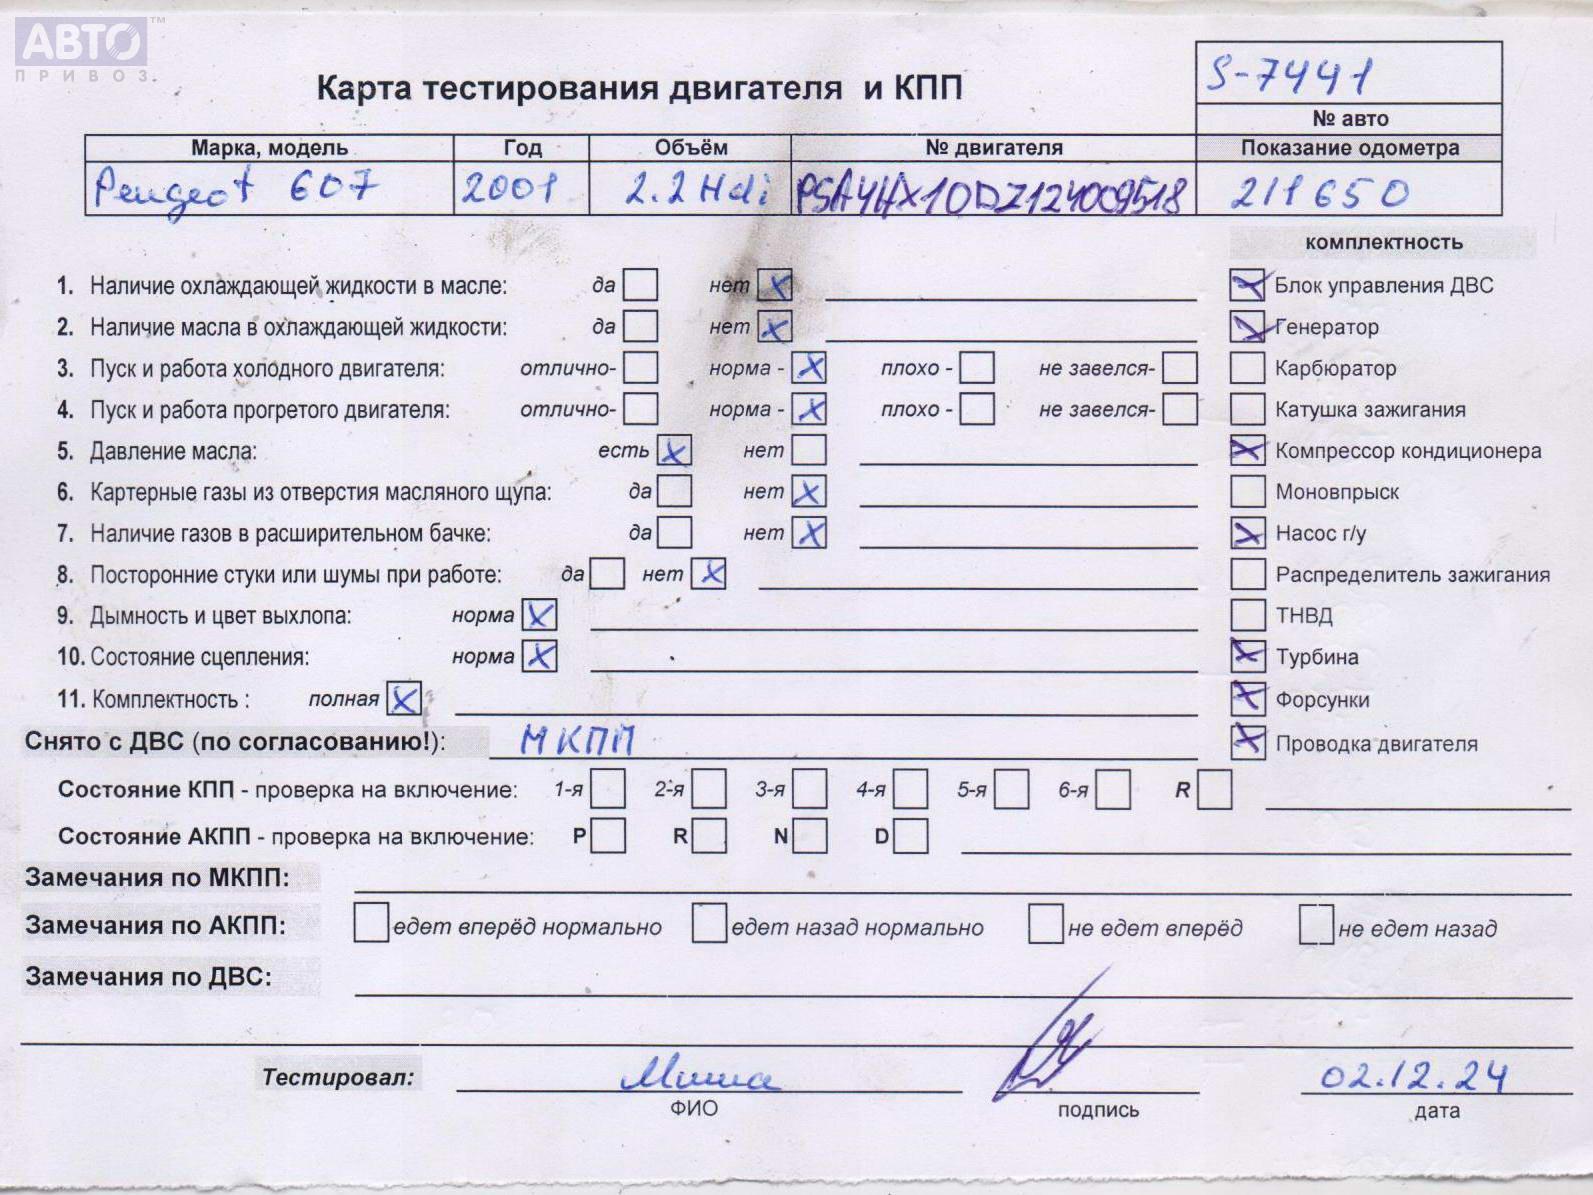 АВТО™
ПРИВОЗ
S-7441
Карта тестирования двигателя и КПП
№ авто
Марка, модель Год Объём № двигателя Показание одометра
Peugeot 607 2001 2.2 Hdi PSA4HX10DZ124009518 211650
комплектность
1. Наличие охлаждающей жидкости в масле: да нет X Блок управления ДВС
2. Наличие масла в охлаждающей жидкости: да нет X Генератор
3. Пуск и работа холодного двигателя: отлично- норма - X плохо - не завелся- Карбюратор
4. Пуск и работа прогретого двигателя: отлично- норма - X плохо - не завелся- Катушка зажигания
5. Давление масла: есть X нет X Компрессор кондиционера
6. Картерные газы из отверстия масляного щупа: да нет X Моновпрыск
7. Наличие газов в расширительном бачке: да нет X X Насос г/у
8. Посторонние стуки или шумы при работе: да нет X Распределитель зажигания
9. Дымность и цвет выхлопа: норма X ТНВД
10. Состояние сцепления: норма X X Турбина
11. Комплектность : полная X X Форсунки
Снято с ДВС (по согласованию!): МКПП X Проводка двигателя
Состояние КПП - проверка на включение: 1-я 2-я 3-я 4-я 5-я 6-я R
Состояние АКПП - проверка на включение: P R N D
Замечания по МКПП:
Замечания по АКПП: едет вперёд нормально едет назад нормально не едет вперёд не едет назад
Замечания по ДВС:
Тестировал: Миша 02.12.24
ФИО подпись дата